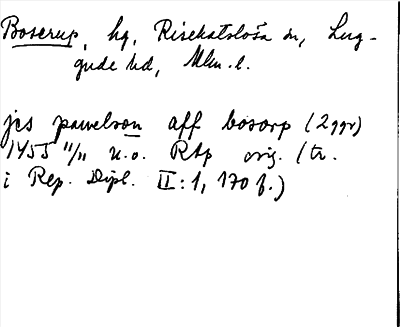 Boserup, hg, Risekatslösa sn, Lug-
gude hd, Mlm. l.
jes pawelson aff bosorp (2 ggr)
1455 11/11 u.o. RAp orig. (tr.
i Rep. Dipl. II:1, 170 f.)